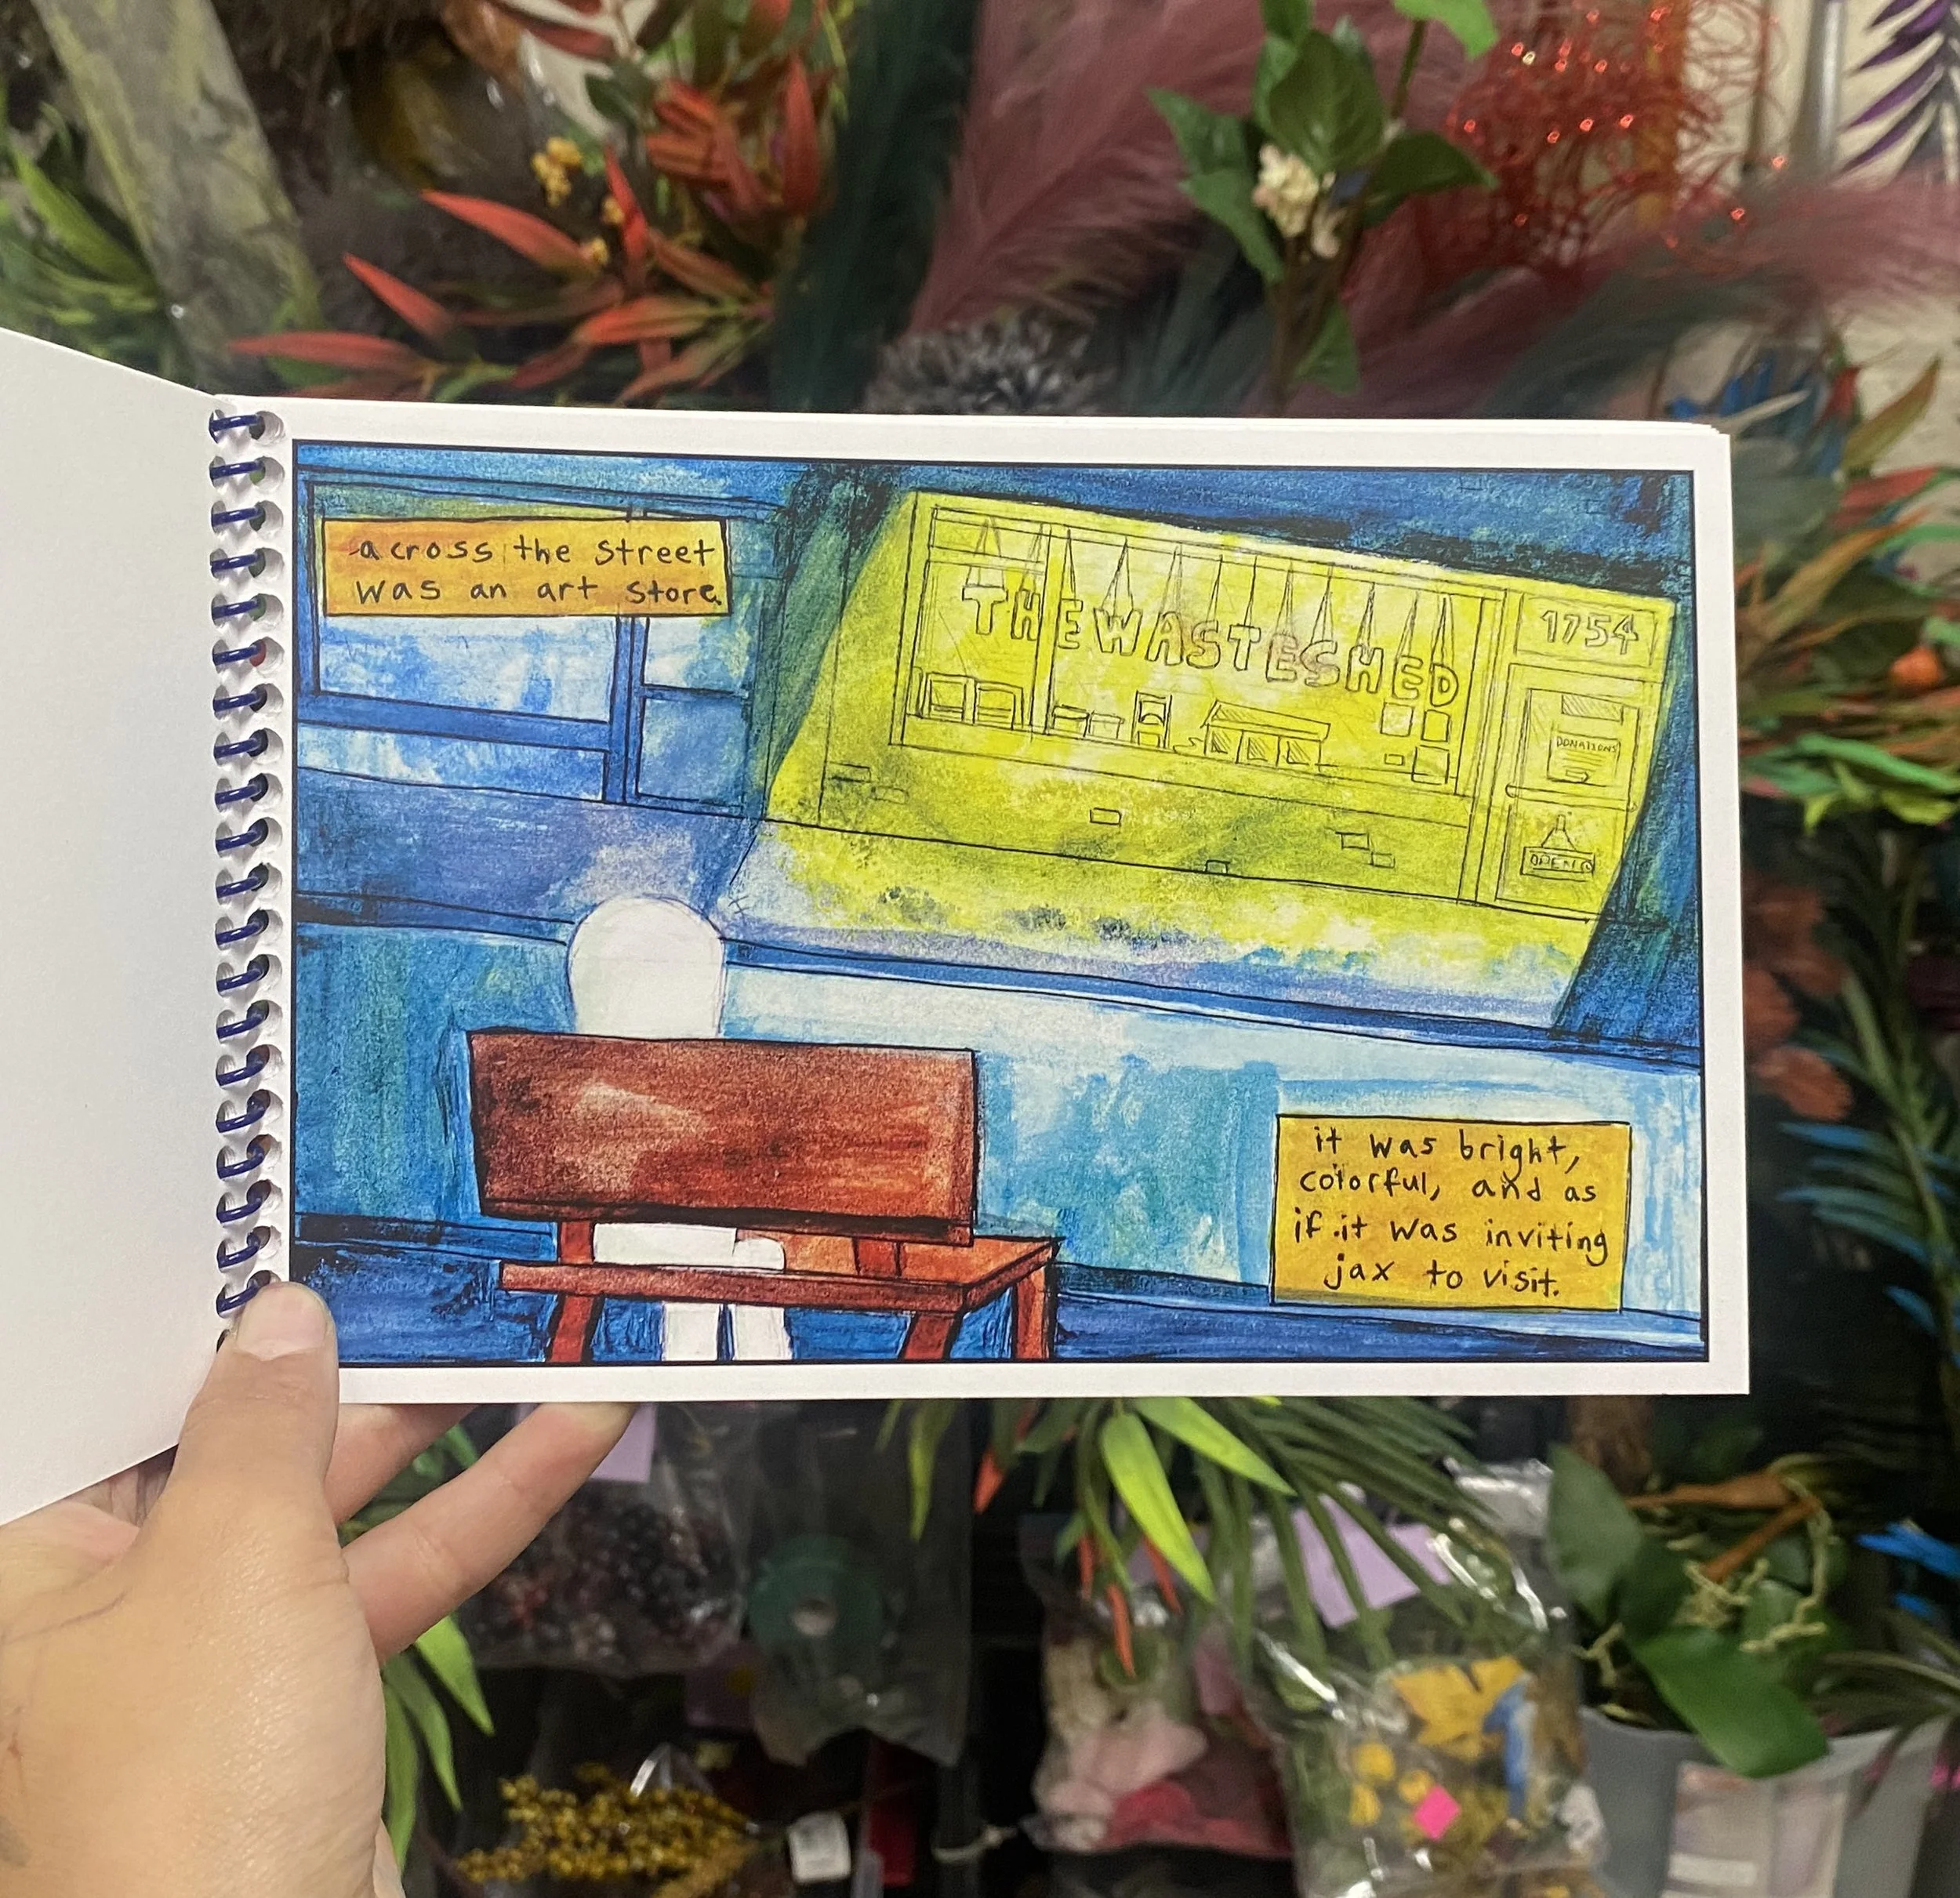 across the street
was an art store
THE WASTESHED
1754
DONATIONS
OPEN
it was bright,
colorful, and as
if it was inviting
jax to visit.